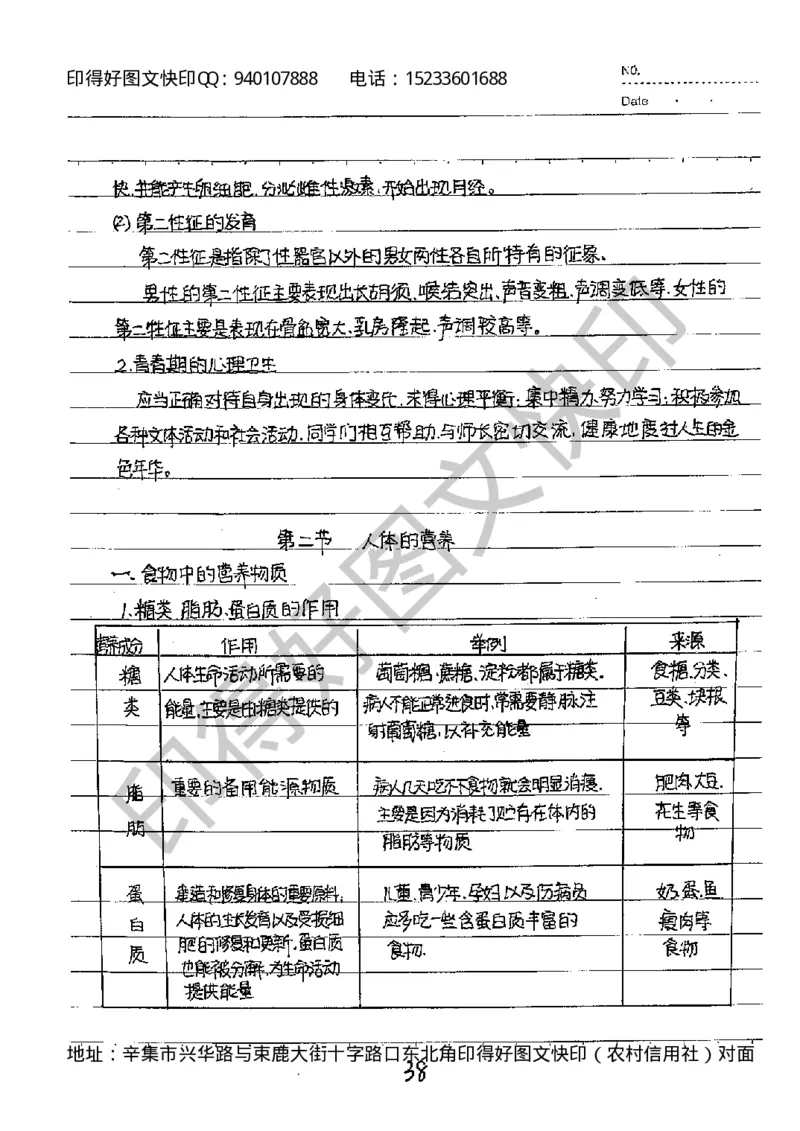 印得好图文快印QQ：940107888 电话：15233601688
NO.
Date
快,并能产生卵细胞,分泌雌性激素,开始出现月经。
(2) 第二性征的发育
第二性征是指除了性器官以外的男女两性各自所特有的征象。
男性的第二性征主要表现出长胡须,喉结突出,声音变粗,声调变低等,女性的
第二性征主要是表现在骨盆宽大,乳房隆起,声调较高等。
2.青春期的心理卫生
应当正确对待自身出现的身体变化,求得心理平衡;集中精力,努力学习;积极参加
各种文体活动和社会活动,同学们相互帮助,与师长密切交流,健康地度过人生的金
色年华。
第二节 人体的营养
一.食物中的营养物质
1.糖类 脂肪、蛋白质的作用
营养成分 作用 举例 来源
糖 人体生命活动所需要的 葡萄糖,蔗糖、淀粉都属于糖类。 食糖,分类、
类 能量,主要是由糖类提供的 病人不能正常进食时,常需要静脉注 豆类、块根
射葡萄糖,以补充能量 等
脂 重要的备用能源物质 病人几天吃不下食物就会明显消瘦. 肥肉,大豆.
肪 主要是因为消耗了贮存在体内的 花生等食
脂肪等物质 物
蛋 建造和修复身体的重要原料; 儿童、青少年、孕妇以及伤病员 奶、蛋、鱼
白 人体的生长发育以及受损细 应多吃一些含蛋白质丰富的 瘦肉等
质 胞的修复和更新,蛋白质 食物. 食物
也能被分解,为生命活动
提供能量
地址：辛集市兴华路与束鹿大街十字路口东北角印得好图文快印（农村信用社）对面
38
印得好图文快印